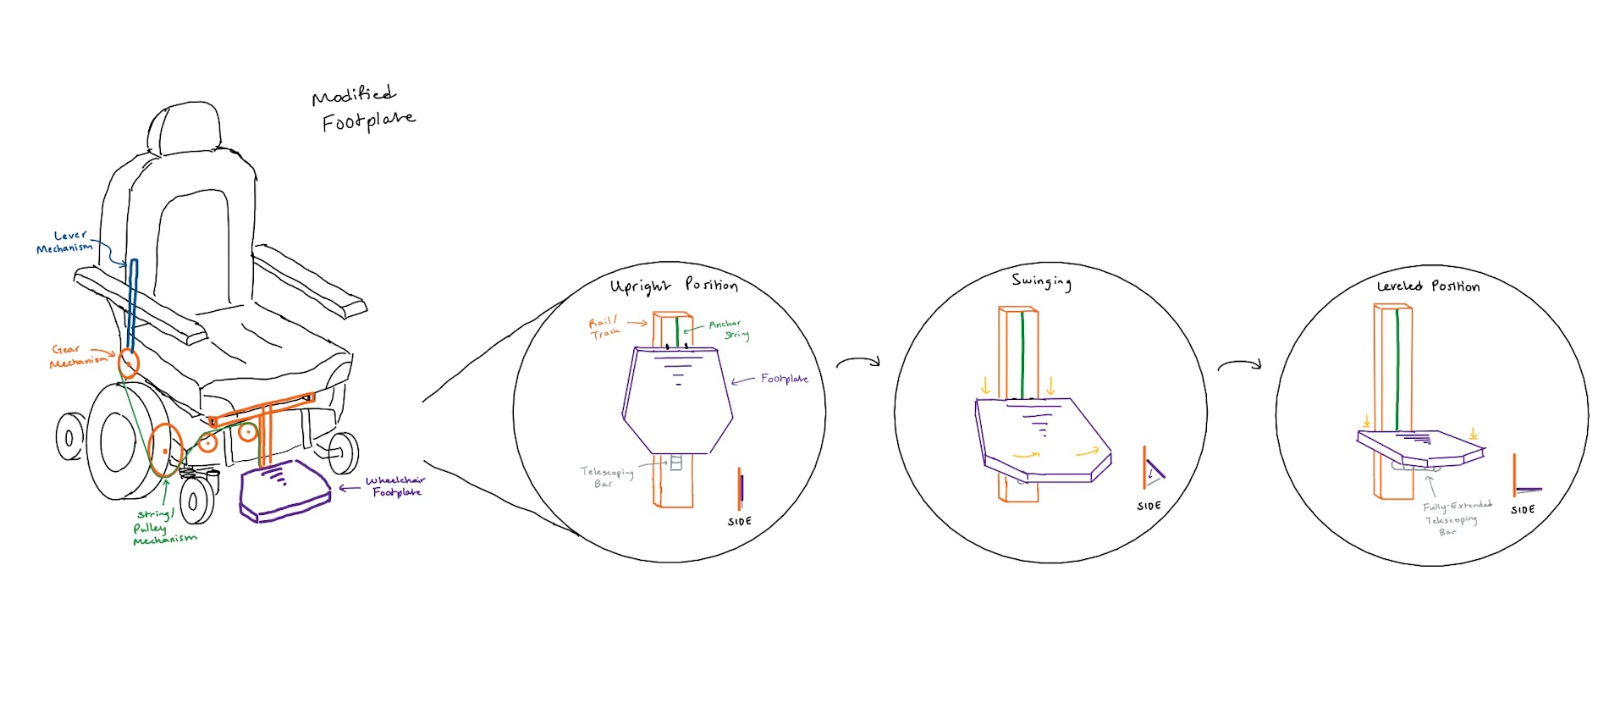 Modified
Footplate
Lever
Mechanism
Gear
Mechanism
String/
Pulley
Mechanism
Wheelchair
Footplate
Upright Position
Rail/
Track
Anchor
String
Footplate
Telescoping
Bar
SIDE
Swinging
SIDE
Leveled Position
Fully-Extended
Telescoping
Bar
SIDE